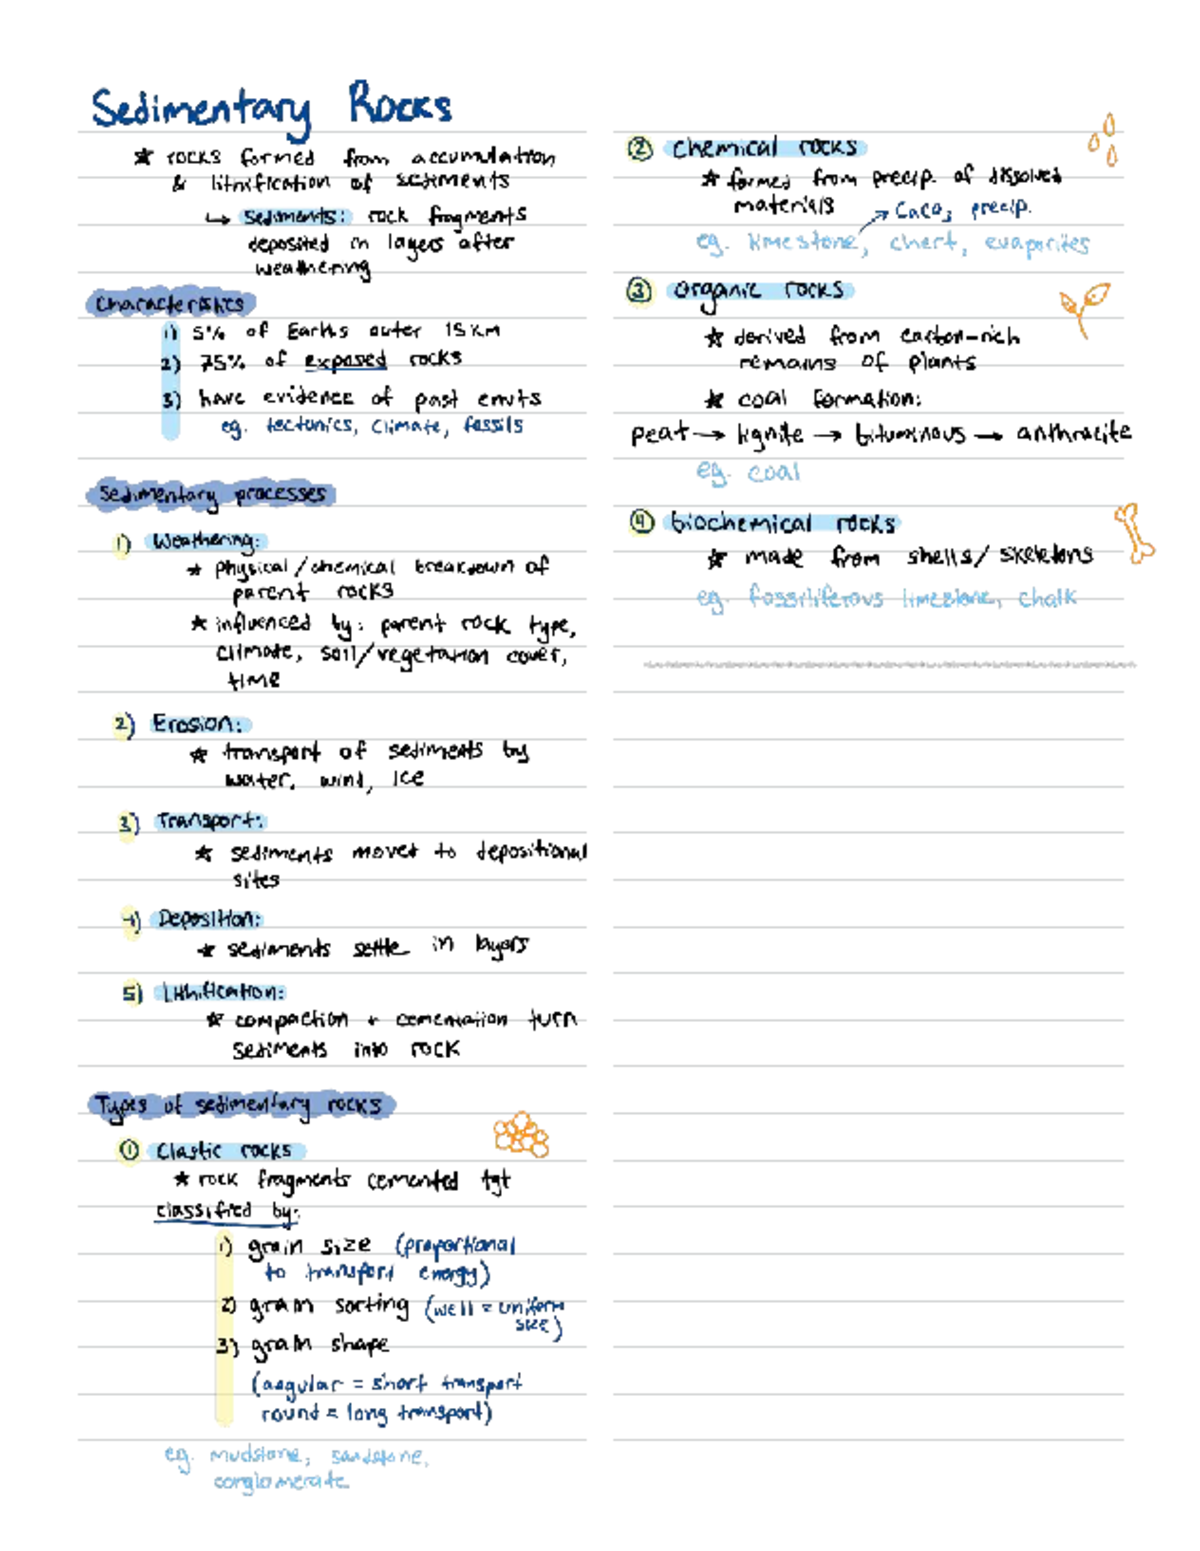 Sedimentary Rocks
★ rocks formed from accumulation
& lithification of sediments
↳ sediments: rock fragments
deposited in layers after
weathering
Characteristics
1) 5% of Earths outer 15km
2) 75% of exposed rocks
3) have evidence of past envts
eg. tectonics, climate, fossils
Sedimentary processes
1) Weathering:
★ physical/chemical breakdown of
parent rocks
★ influenced by: parent rock type,
climate, soil/vegetation cover,
time
2) Erosion:
★ transport of sediments by
water, wind, ice
3) Transport:
★ sediments moved to depositional
sites
4) Deposition:
★ sediments settle in layers
5) Lithification:
★ compaction + cementation turn
sediments into rock
Types of sedimentary rocks
① Clastic rocks
★ rock fragments cemented tgt
classified by:
1) grain size (proportional
to transport energy)
2) grain sorting (well = uniform
size)
3) grain shape
(angular = short transport
round = long transport)
eg. mudstone, sandstone,
conglomerate
② chemical rocks
★ formed from precip. of dissolved
materials → CaCO₃ precip.
eg. limestone, chert, evaporites
③ organic rocks
★ derived from carbon-rich
remains of plants
★ coal formation:
peat → lignite → bituminous → anthracite
eg. coal
④ biochemical rocks
★ made from shells/skeletons
eg. fossiliferous limestone, chalk